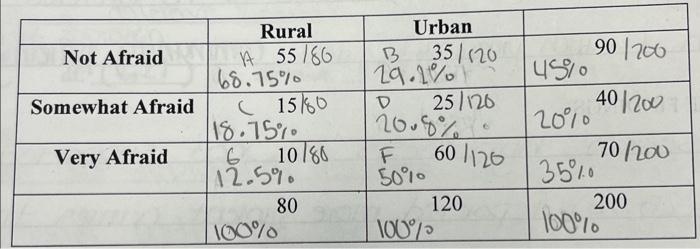 Rural Urban
Not Afraid A 55/80 B 35/120 90/200
68.75% 29.2% 45%
Somewhat Afraid C 15/80 D 25/120 40/200
18.75% 20.8% 20%
Very Afraid E 10/80 F 60/120 70/200
12.5% 50% 35%
80 120 200
100% 100% 100%